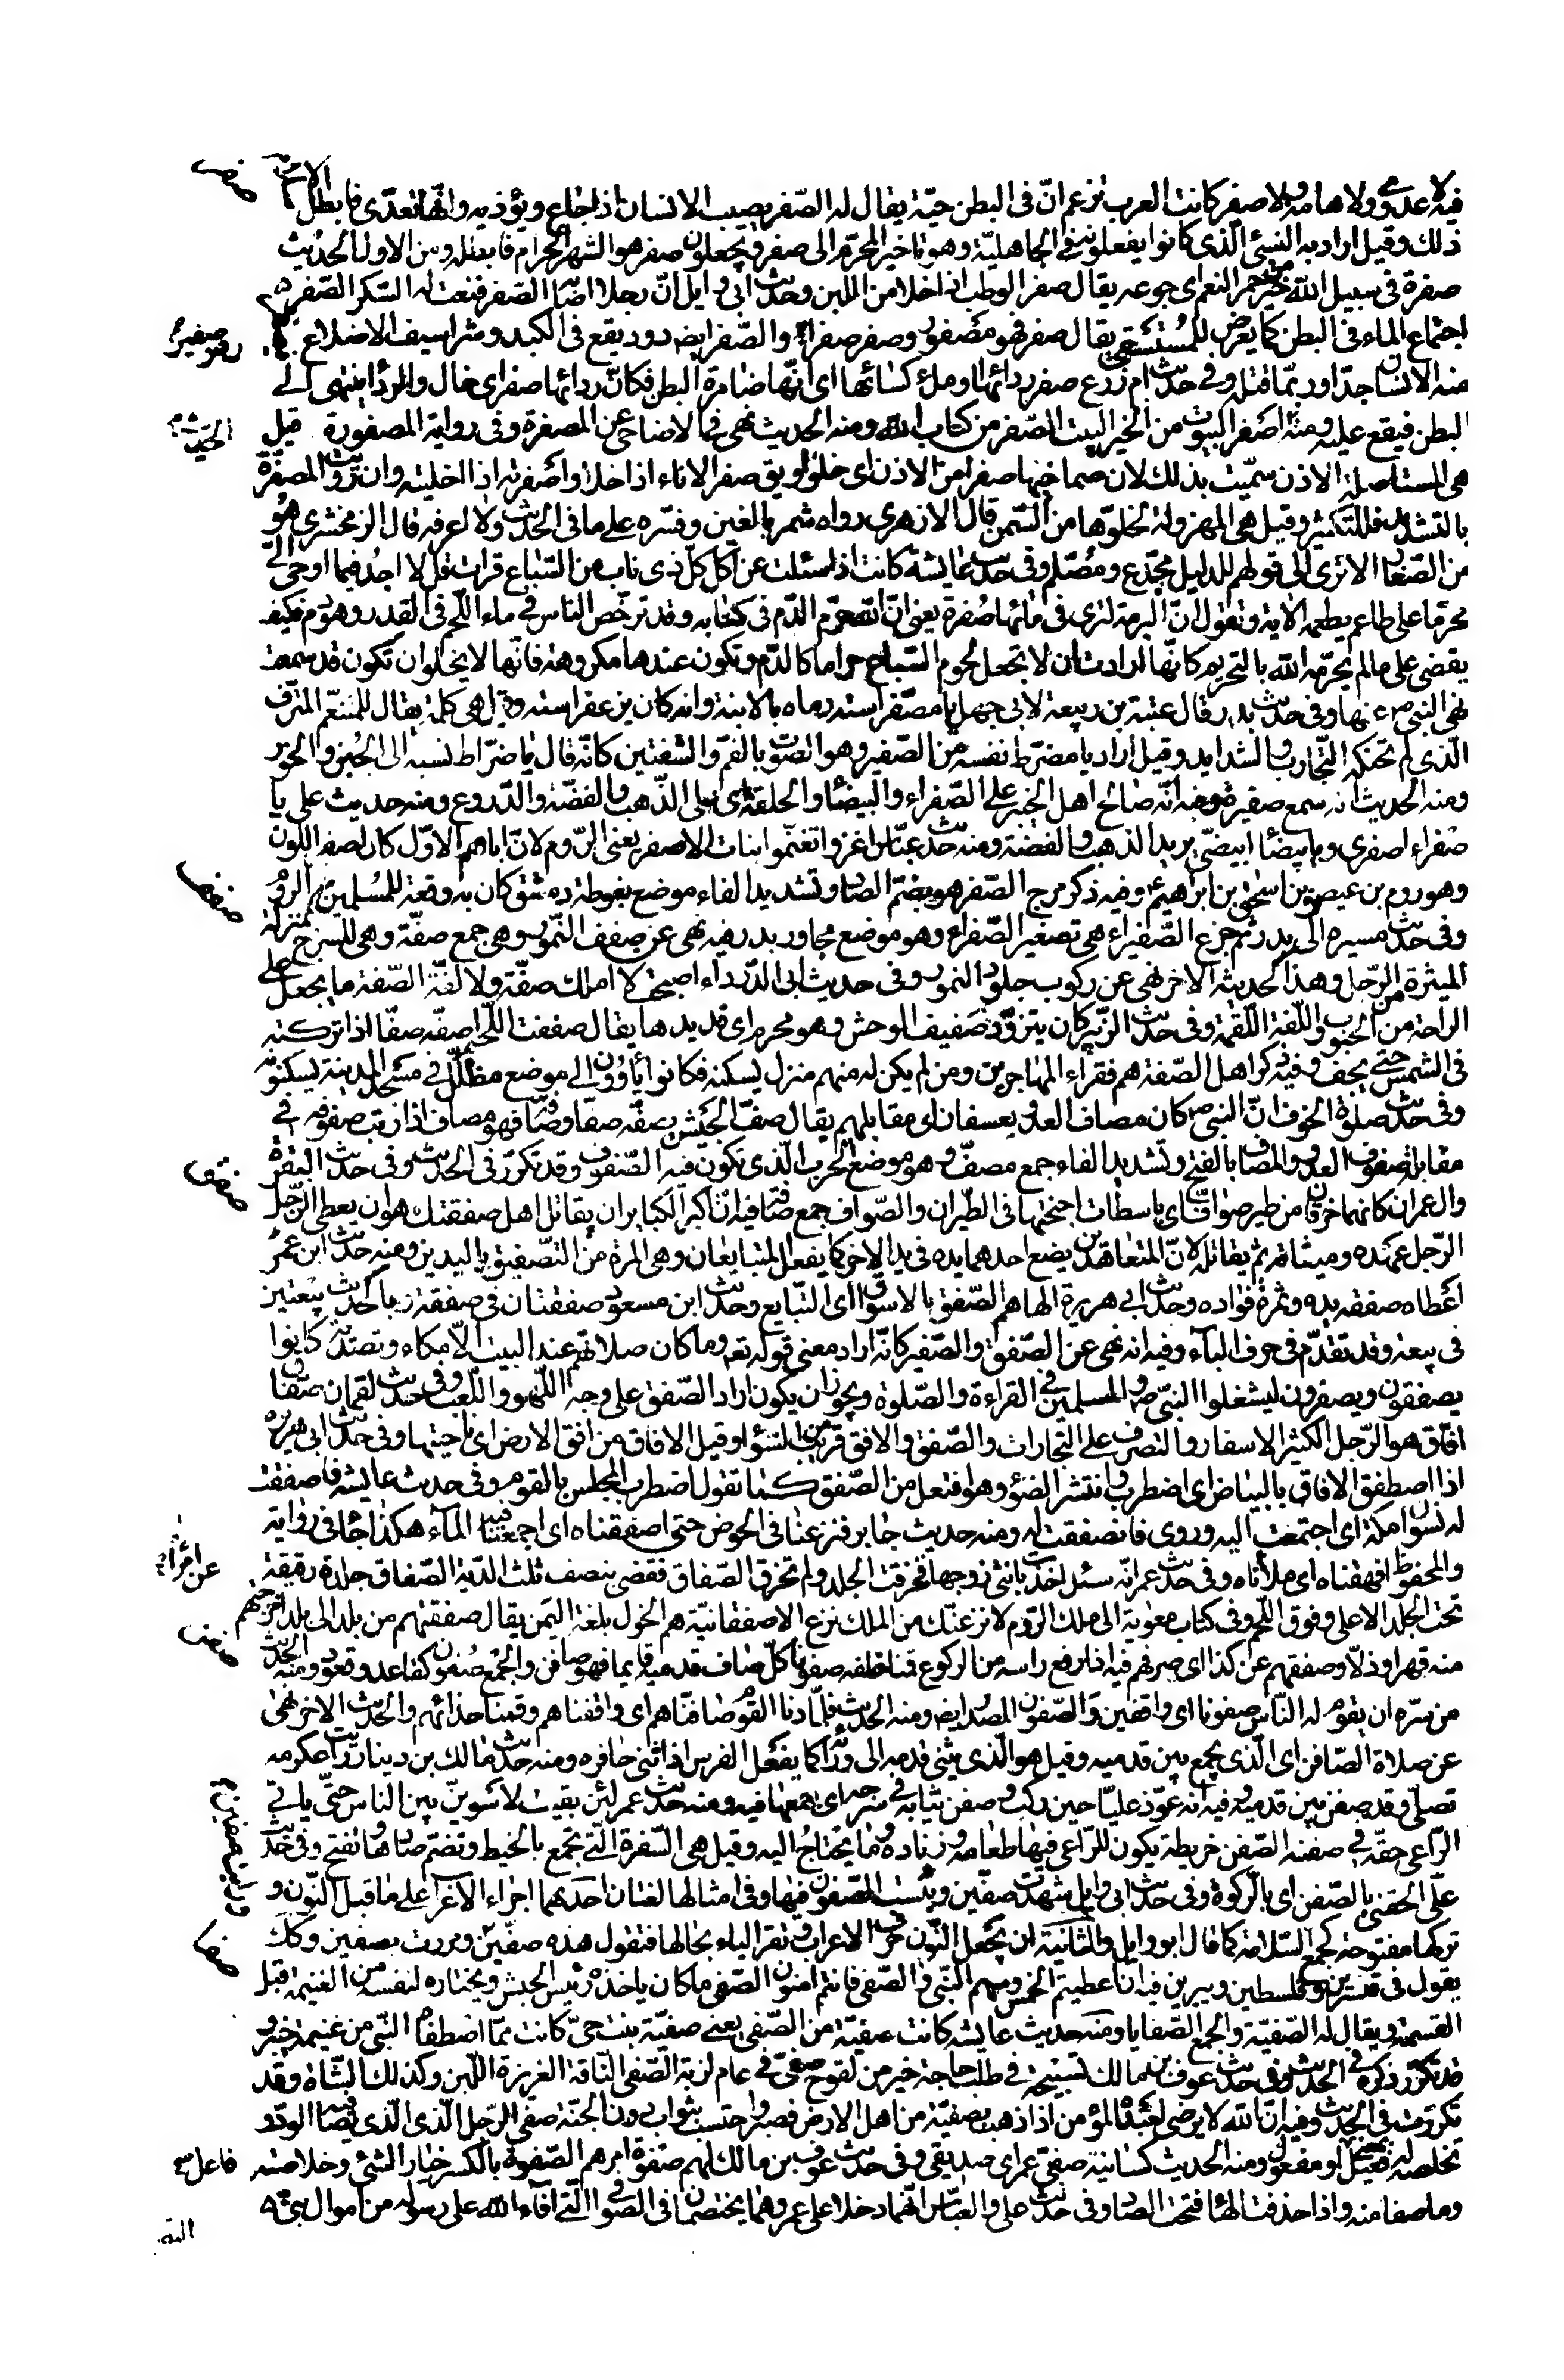 فيه لا عدوى ولا هامة ولا صفر كانت العرب تزعم انّ فى البطن حيّة يقال له الصّفر يصيب الانسان اذا جاع ويؤذيه وانّها تعدى فابطل الاسلام
ذلك وقيل اراد به النسئ الّذى كانوا يفعلونه فى الجاهليّة وهو تاخير المحرّم الى صفر ويجعلون صفر هو الشهر الحرام فابطله ومن الاول الحديث
صفرة فى سبيل الله خير من حمر النعم اى جوعه يقال صفر الوطب اذا خلا من اللبن وحديث ابى وايل انّ رجلا اصابه الصّفر فنعت له السّكر الصّفر
اجتماع الماء فى البطن كما يعرض للمستسقى يقال صفر فهو مصفور وصفر صفرا والصّفر ايضا دود يقع فى الكبد وشراسيف الاضلاع فيصفر
منه الانسان جدّا وربّما قتله وفى حديث ام زرع صفر ردائها وملء كسائها اى انّها ضامرة البطن فكانّ ردائها صفر اى خال والرّدا ينتهى الى
البطن فيقع عليه ومنه اصفر البيوت من الخير البيت الصّفر من كتاب الله ومنه الحديث نهى فى الاضاحى عن المصفرة وفى رواية المصفورة قيل
هى المستاصلة الاذن سمّيت بذلك لان صماخيها صفرا من الاذن اى خلوا ويق صفر الاناء اذا خلا واصفرته اذا اخليته وان رويت المصفّرة
بالتشديد فللتكثير وقيل هى المهزولة لخلوّها من السّمن قال الازهرى رواه شمر بالغين وفسّره على ما فى الحديث ولا اعرفه قال الزمخشرى هو
من الصّغار الا ترى الى قولهم للذليل مجدّع ومصلّم وفى حديث عايشة كانت اذا سئلت عن اكل كلّ ذى ناب من السّباع قرات قل لا اجد فيما اوحى الىّ
محرّما على طاعم يطعمه الاية وتقول انّ البرمة لترى فى مائها صفرة يعنى انّ الله حرّم الدّم فى كتابه وقد ترخّص الناس فى ماء اللّحم فى القدر وهو دم فكيف
يقضى على ما لم يحرّمه الله بالتحريم كانّها ارادت ان لا تجعل لحوم السّباع حراما كالدّم وتكون عندها مكروهة فانّها لا يخلو ان تكون قد سمعت
نهى النبى ص عنها وفى حديث بدر قال عتبة بن ربيعة لابى جهل يا مصفّر استه رماه بالابنة وانه كان يزعفر استه وقيل هى كلمة يقال للمتنعّم المترف
الّذى لم تحنّكه التّجارب والشدايد وقيل اراد يا مضرّط نفسه من الصّفير وهو الصّوت بالفم والشفتين كانّه قال يا ضرّاط نسبه الى الجبن والخور
ومنه الحديث انه سمع صفيره وفيه انّه صالح اهل الخيبر على الصّفراء والبيضاء والحلقة اى على الذّهب والفضّة والدّروع ومنه حديث على يا
صفراء اصفرى ويا بيضا ابيضّى يريد الذهب والفضّة ومنه حديث ابن عبّاس اغزوا تغنّموا بنات الاصفر يعنى الرّوم لانّ اباهم الاوّل كان اصفر اللّون
وهو روم بن عيصو بن اسحٰق بن ابرٰهيم وفيه ذكر مرج الصّفر هو بضمّ الصّاد وتشديد الفاء موضع بغوطة دمشق كان به وقعة للمسلمين مع الرّوم
وفى حديث مسيره الى بدر ثم جزع الصّفيراء هى تصغير الصّفراء وهو موضع مجاور بدر فيه نهى عن صفف النّمور هى جمع صفّة وهى للسرج بمنزلة
الميثرة من الرّحل وهذا كحديثه الاخر نهى عن ركوب جلود النمور وفى حديث ابى الدّرداء اصبحت لا املك صفّة ولا لفّة الصّفة ما يجعل على
الراحة من الحبوب واللّفة اللّقمة وفى حديث الزّبير كان يتزوّد صفيف الوحش وهو محرم اى قديدها يقال صففت اللّحم اصفّه صفّا اذا تركته
فى الشمس حتى يجف وفيه ذكر اهل الصّفة هم فقراء المهاجرين ومن لم يكن له منهم منزل يسكنه فكانوا يأوون الى موضع مظلّل فى مسجد المدينة يسكنونه
وفى حديث صلوة الخوف انّ النبى ص كان مصاف العدو بعسفان اى مقابلهم يقال صفّ الجيش يصفّه صفّا وصافّه فهو مصاف اذا رتب صفوفه فى
مقابلة صفوف العدو والمصاف بالفتح وتشديد الفاء جمع مصفّ وهو موضع الحرب الّذى تكون فيه الصّفوف وقد تكرّر فى الحديث وفى حديث البقرة
وال عمران كانهما خرقان من طير صوافّ اى باسطات اجنحتها فى الطّيران والصّواف جمع صافّة فيه انّ اكبر الكباير ان يقاتل اهل صفقتك هو ان يعطى الرّجل
الرّجل عهده وميثاقه ثم يقاتله لانّ المتعاهدين يضع احدهما يده فى يد الاخر كما يفعل المتبايعان وهى المرة من التّصفيق باليدين ومنه حديث ابن عمر
اعطاه صفقة يده وثمرة فؤاده وحديث ابى هريرة الهاهم الصّفق بالاسواق اى التبايع وحديث ابن مسعود صفقتان فى صفقة ربا كحديث بيعتين
فى بيعة وقد تقدّم فى حرف الباء وفيه انه نهى عن الصّفق والصّفير كانّه اراد معنى قوله تعه وما كان صلاتهم عند البيت الّا مكاء وتصدية كانوا
يصفقون ويصفرون ليشغلوا النبىّ ص والمسلمين فى القراءة والصّلوة ويجوز ان يكون اراد الصّفق على وجه اللّهو واللّعب وفى حديث لقمان صفّاق
افّاق هو الرّجل الكثير الاسفار والتصرف على التّجارات والصّفق والافق قريب من السّوا وقيل الافّاق من افق الارض اى ناحيتها وفى حديث ابى هريرة
اذا اصطفق الافاق بالبياض اى اضطرب وانتشر الضّوء وهو افتعل من الصّفق كما تقول اضطرب المجلس بالقوم وفى حديث عايشة فاصفقت
له نسوان مكة اى اجتمعت اليه وروى فانصفقت له ومنه حديث جابر فنزعنا فى الحوض حتى اصفقناه اى جمعنا فيه الماء هكذا جاء فى رواية
والمحفوظ افهقناه اى ملأناه وفى حديث عمر انّه سئل عن امراة اخذت بانثى زوجها فخرقت الجلد ولم تخرق الصّفاق فقضى بنصف ثلث الدّية الصّفاق جلدة رقيقة
تحت الجلد الاعلى وفوق اللّحم وفى كتاب معوية الى ملك الرّوم لانزعنّك من الملك نزع الاصفقانيّة هم الخول بلغة اليمن يقال صفقتهم من بلد الى بلد اخرجتهم
منه قهرا وذلّا وصفقهم عن كذا اى صرفهم فيه اذا رفع راسه من الركوع قمنا خلفه صفونا كلّ صاف قدميه قايما فهو صافن والجمع صفون كقاعد وقعود ومنه الحديث
من سرّه ان يقوم له النّاس صفونا اى واقفين والصّفون المصدر ايضا ومنه الحديث فلمّا دنا القوم صافنّاهم اى واقفناهم وقمنا حذائهم والحديث الاخر نهى
عن صلاة الصّافن اى الّذى يجمع بين قدميه وقيل هو الّذى يثنى قدمه الى ورائه كما يفعل الفرس اذا ثنى حافره ومنه حديث مالك بن دينار رايت عكرمه
يصلّى وقد صفن بين قدميه وفيه انه عوّذ عليّا حين ركب وصفن ثيابه فى سرجه اى جمعها فيه ومنه حديث عمر لئن بقيت لاسّوينّ بين الناس حتّى ياتى
الرّاعى حقّه فى صفنه الصّفن خريطة يكون للرّاعى فيها طعامه وزناده وما يحتاج اليه وقيل هى السّفرة الّتى تجمع بالخيط وتضمّ صادها وتفتح وفى حديث
علىّ الحقنى بالصّفن اى بالرّكوة وفى حديث ابى وايل شهدت صفّين وبئست الصّفون فيها وفى امثالها لغتان احدهما اجراء الاعراب على ما قبل النّون و
تركها مفتوحة كجمع السّلامة كما قال ابو وايل والثّانية ان تجعل النّون حرف الاعراب وتقرّ الياء بحالها فتقول هذه صفّين ومررت بصفين وكك
يقول فى قنسرين وفلسطين ويبرين فيه ان اعطيتم الخمس وسهم النّبى والصّفى فانتم امنون الصّفى ما كان ياخذه رئيس الجيش ويختاره لنفسه من الغنيمة قبل
القسمة ويقال له الصّفيّة والجمع الصّفايا ومنه حديث عايشه كانت صفيّة من الصّفى يعنى صفيّة بنت حىّ كانت ممّا اصطفاه النّبى من غنيمة خيبر و
قد تكرّر ذكره فى الحديث وفى حديث عوف بن مالك تسبيحة فى طلب حاجة خير من لقوح صفىّ فى عام لزبة الصّفى النّاقة الغزيرة اللّبن وكذلك الشّاة وقد
تكررت فى الحديث وفيه انّ الله لا يرضى لعبده المؤمن اذا ذهب بصفيّه من اهل الارض فصبر واحتسب بثواب دون الجنّة صفى الرّجل الّذى يصافيه الودّ و
يخلصه له فعيل بمعنى فاعل او مفعول ومنه الحديث كسانيه صفيّى عمر اى صديقى وفى حديث عوف بن مالك لهم صفوة امرهم الصّفوة بالكسر خيار الشئ وخلاصته
وما صفا منه واذا حذفت الهاء فتحت الصّاد وفى حديث على والعبّاس انّهما دخلا على عمر وهما يختصمان فى الصّوافى الّتى افاء الله على رسوله من اموال بنى
النضير